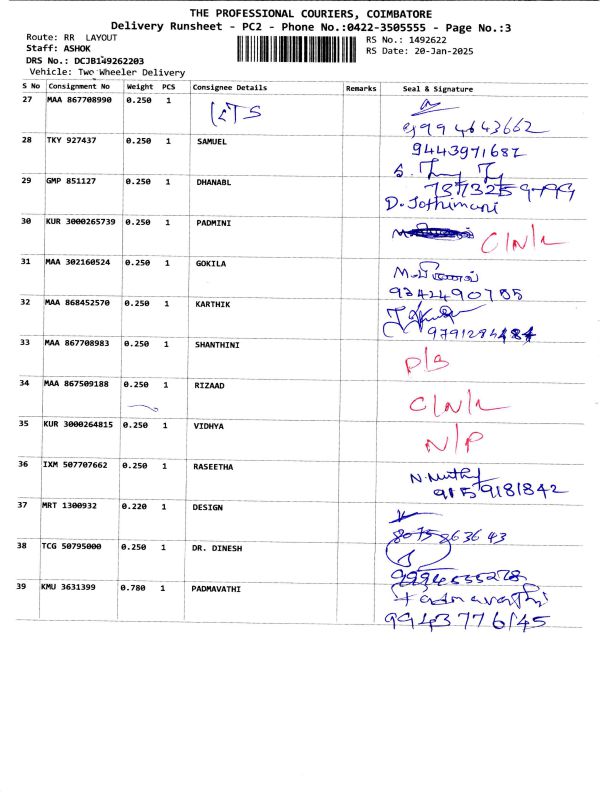 THE PROFESSIONAL COURIERS, COIMBATORE
Delivery Runsheet - PC2 - Phone No.:0422-3505555 - Page No.:3
Route: RR LAYOUT
RS No.: 1492622
Staff: ASHOK
RS Date: 20-Jan-2025
DRS No.: DCJB149262203
Vehicle: Two Wheeler Delivery
S No Consignment No Weight PCS Consignee Details Remarks Seal & Signature
27 MAA 867708990 0.250 1 LTS
9994643662
28 TKY 927437 0.250 1 SAMUEL 9443971687
29 GMP 851127 0.250 1 DHANABL
D. Jothimani
30 KUR 3000265739 0.250 1 PADMINI C/N/L
31 MAA 302160524 0.250 1 GOKILA
9342490785
32 MAA 868452570 0.250 1 KARTHIK
33 MAA 867708983 0.250 1 SHANTHINI D/B
34 MAA 867509188 0.250 1 RIZAAD C/N/L
35 KUR 3000264815 0.250 1 VIDHYA N/P
36 IXM 507707662 0.250 1 RASEETHA N. Muthy
9159181842
37 MRT 1300932 0.220 1 DESIGN
8075863643
38 TCG 50795000 0.250 1 DR. DINESH
9994555278
39 KMU 3631399 0.780 1 PADMAVATHI Padmavathi
9943776145